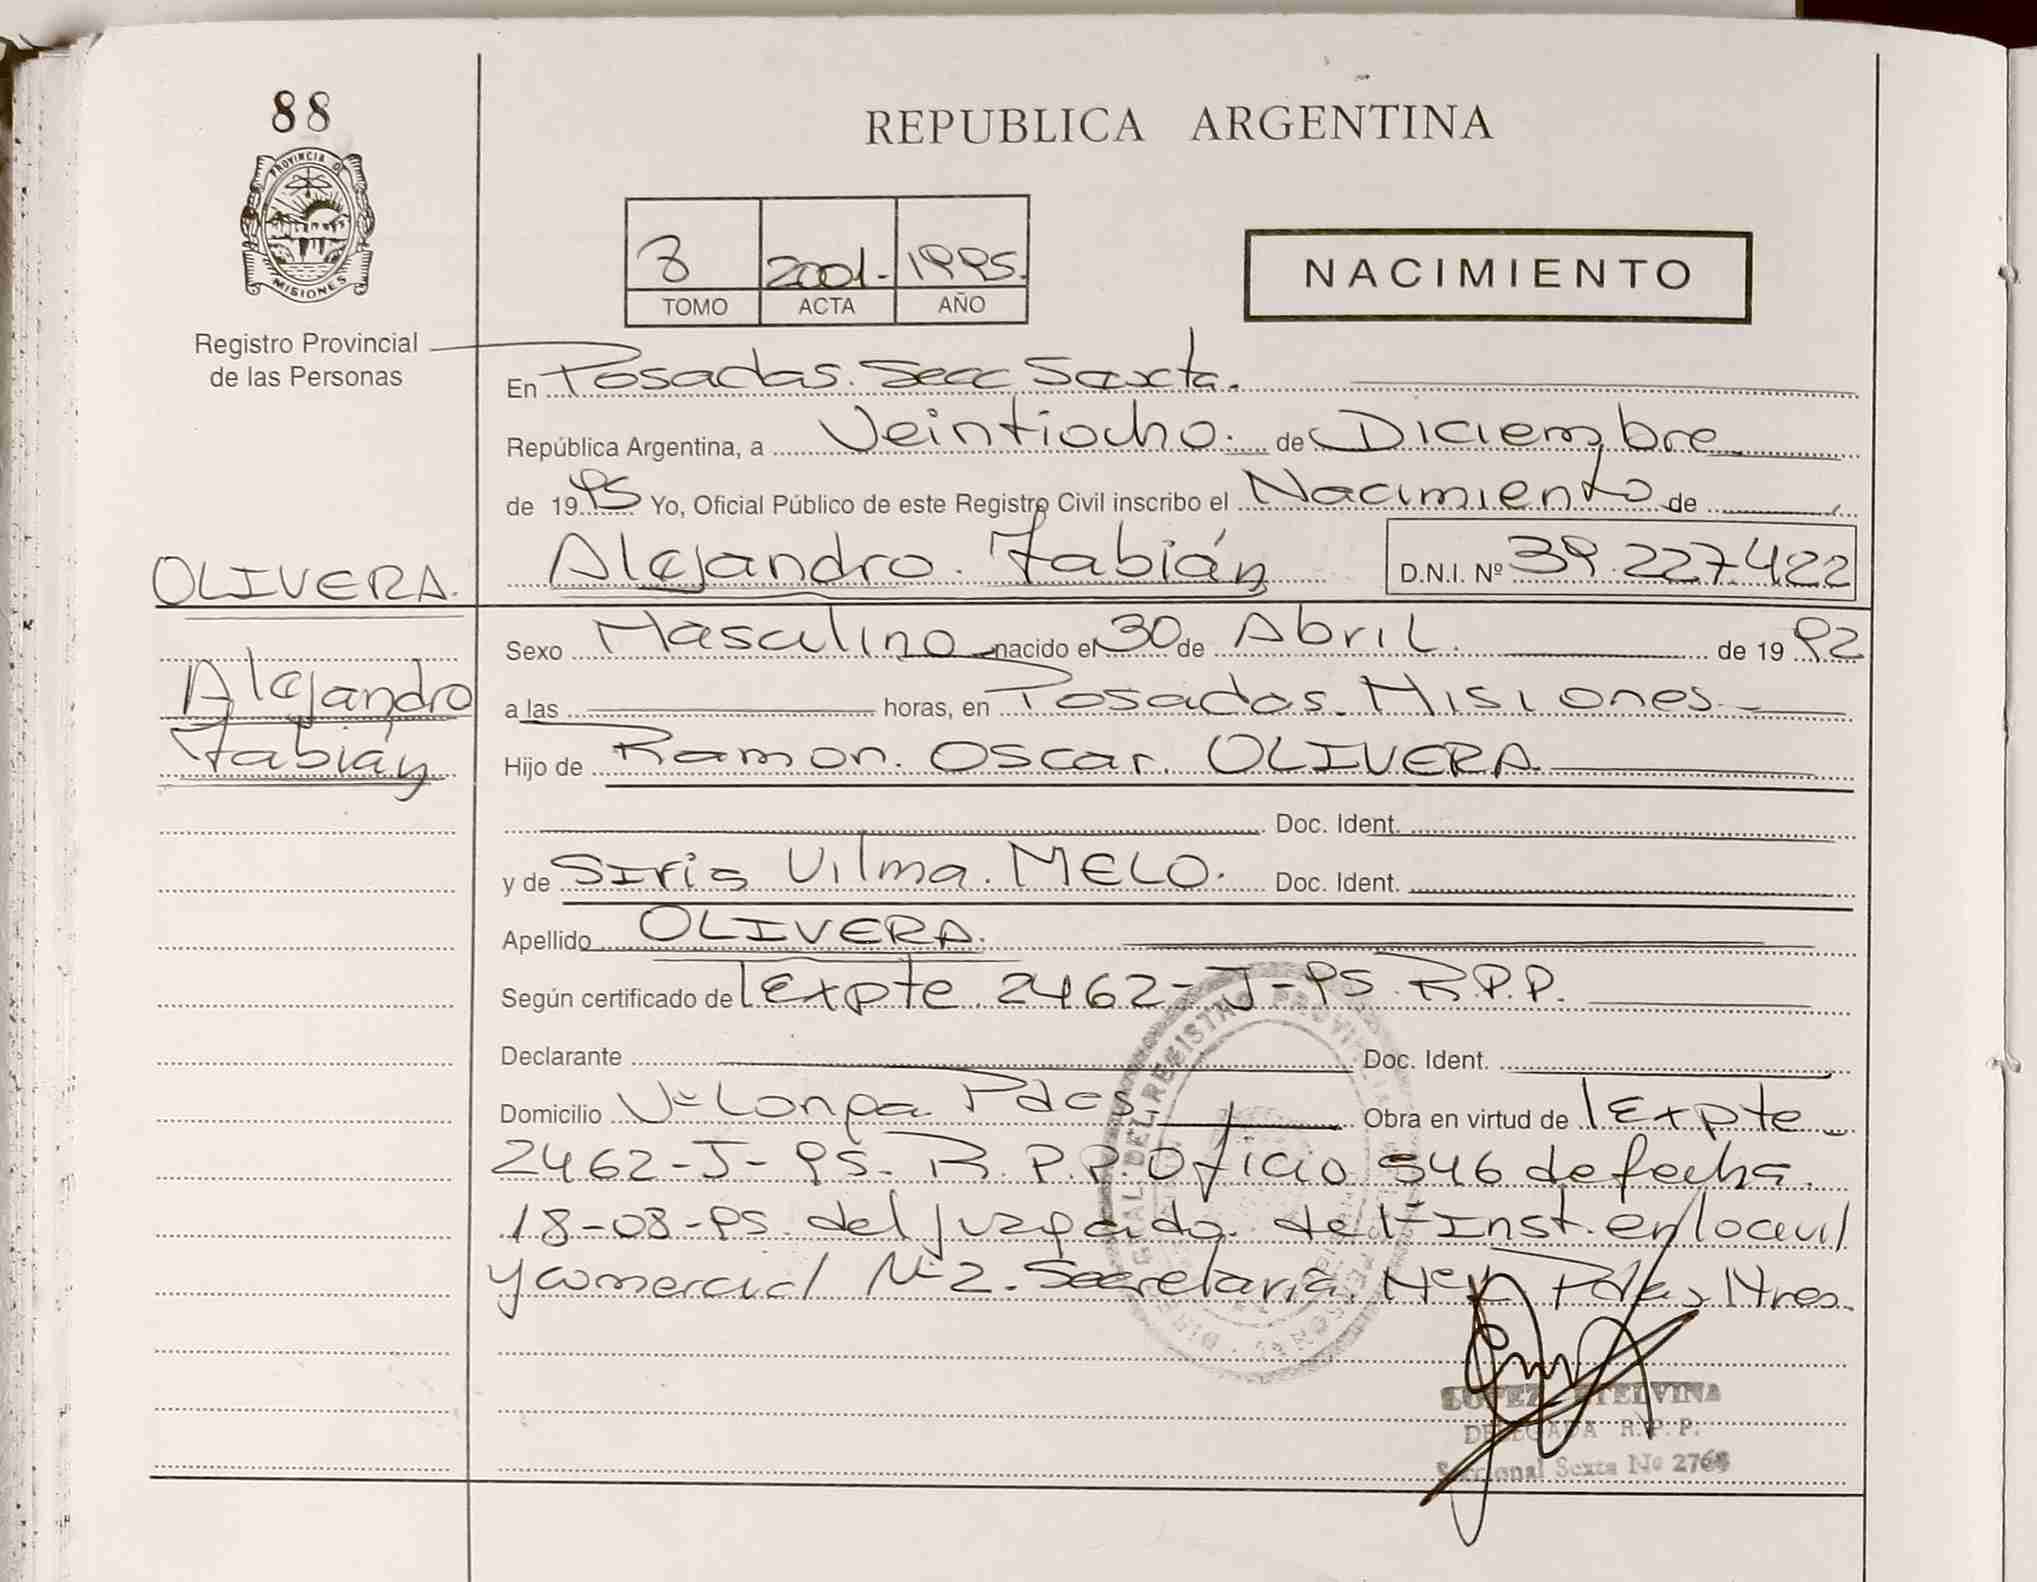 88
REPUBLICA ARGENTINA
PROVINCIA D
MISIONES
Registro Provincial
de las Personas
8 2001.- 1995.
TOMO ACTA AÑO
NACIMIENTO
En Posadas. Secc Sexta.
República Argentina, a Veintiocho. de Diciembre
de 1995 Yo, Oficial Público de este Registro Civil inscribo el Nacimiento de
OLIVERA.
Alejandro. Fabián D.N.I. Nº 39.227.422
Alejandro
Fabián
Sexo Masculino nacido el 30 de Abril. de 1992
a las horas, en Posadas. Misiones
Hijo de Ramon. Oscar. OLIVERA.
Doc. Ident.
y de Siris Vilma. MELO. Doc. Ident.
Apellido OLIVERA.
Según certificado de Expte 2462-J-95. R.P.P.
Declarante Doc. Ident.
Domicilio Vº Longa Pdas. Obra en virtud de Expte
2462-J-95. R.P.P. Oficio 546 de fecha
18-08-95 del juzgado de 1º Inst. en lo civil
y comercial Nº 2. Secretaria Pdas, Mnes.
LOPEZ ETELVINA
DELEGADA R. P. P.
Seccional Sexta Nº 2768